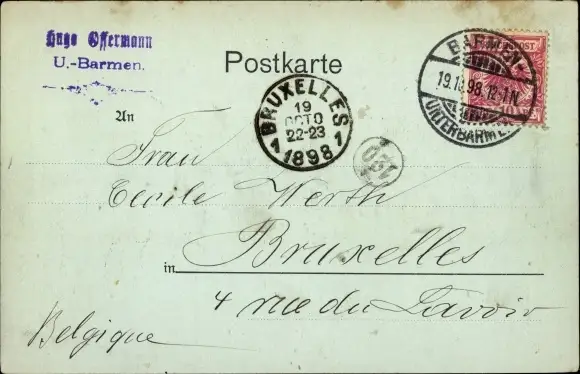 Hugo Offermann
U.-Barmen.
Postkarte
BARMEN-
19.10.98.12-1N.
UNTERBARMEN
BRUXELLES
19
OCTO
22-23
1 1898 1
120
An
Frau
Cecile Werth
in Bruxelles
4 rue du Lavoir
Belgique